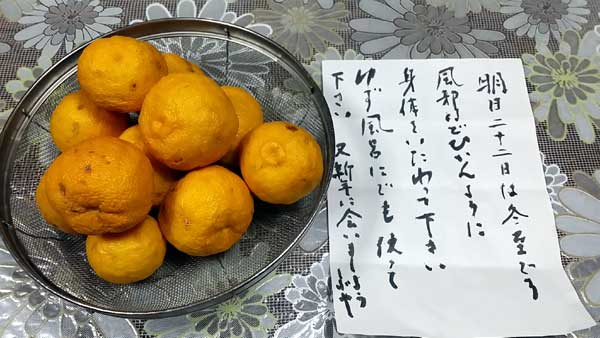 明日二十二日は冬至です
風邪などひかんように
身体をいたわって下さい
ゆず風呂にでも使って
下さい 又新年に会いましょう